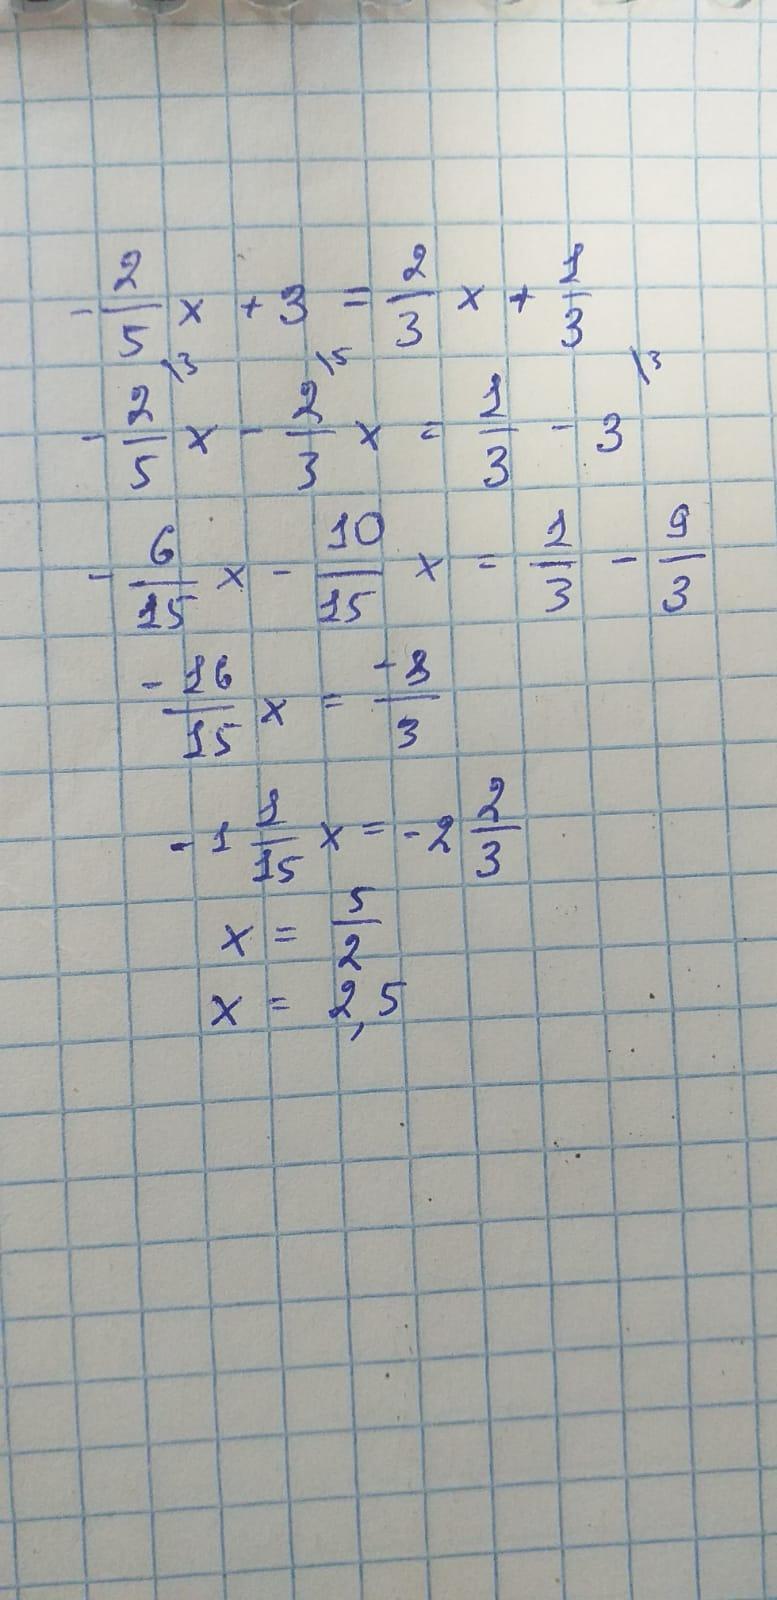 -2/5 x + 3 = 2/3 x + 1/3
-2/5\3 x - 2/3\5 x = 1/3 - 3\3
-6/15 x - 10/15 x = 1/3 - 9/3
-16/15 x = -8/3
-1 1/15 x = -2 2/3
x = 5/2
x = 2,5